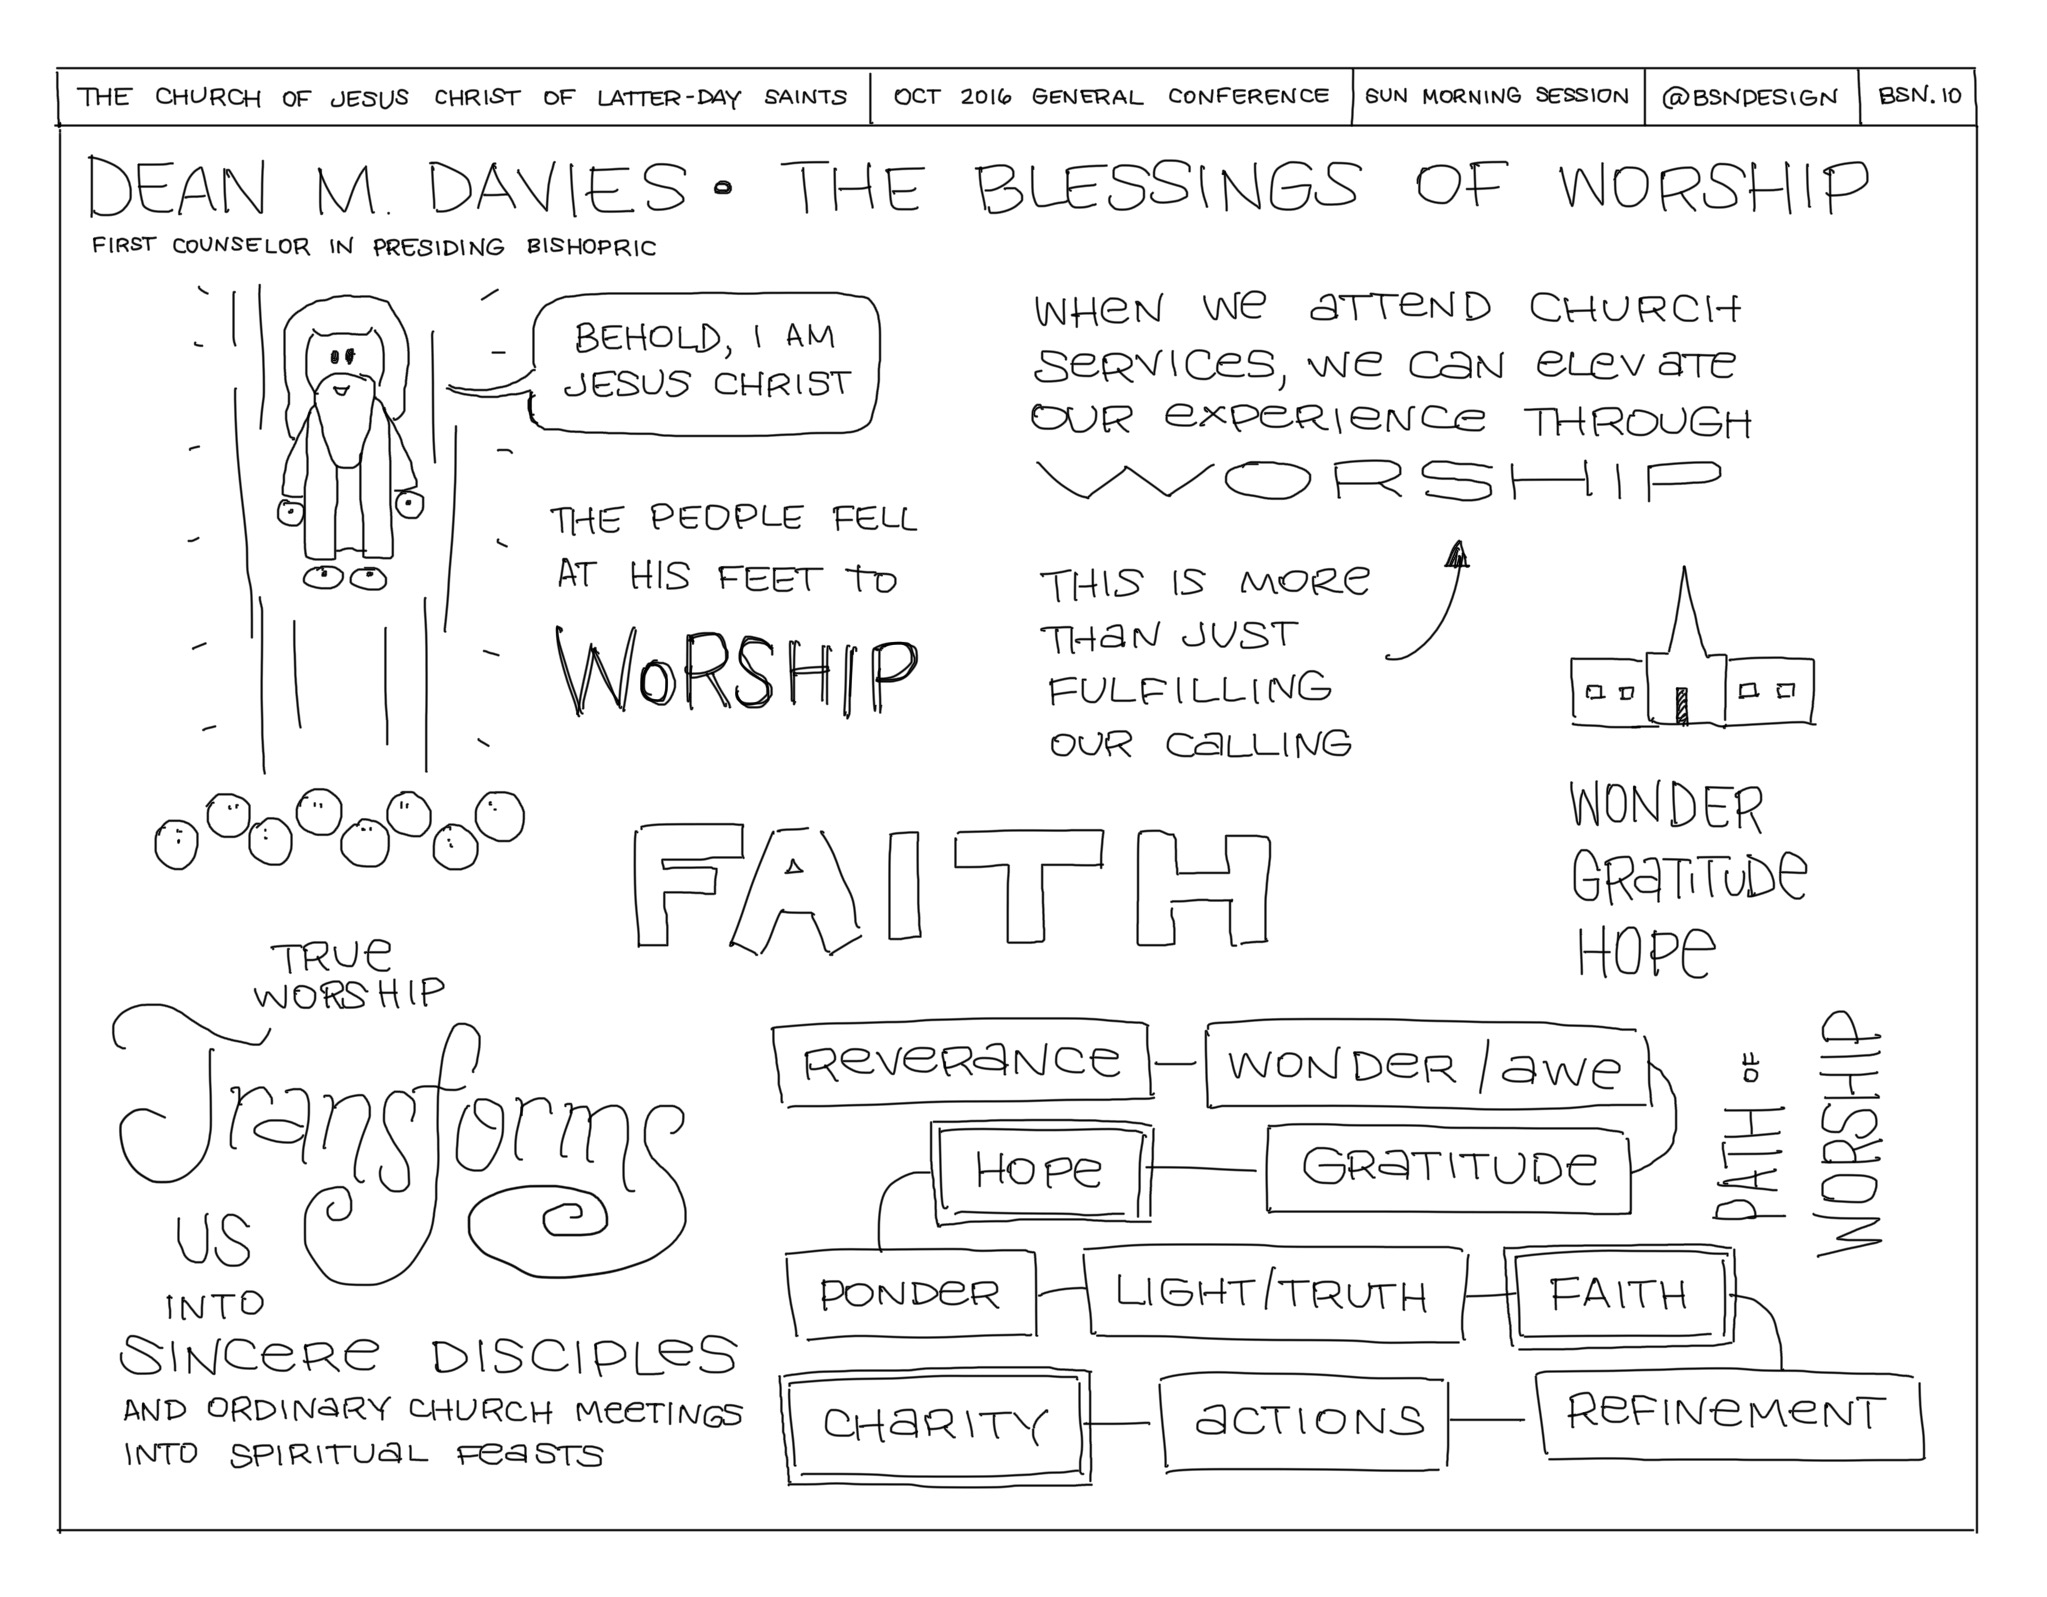 THE CHURCH OF JESUS CHRIST OF LATTER-DAY SAINTS
OCT 2016 GENERAL CONFERENCE
SUN MORNING SESSION
@BSNDESIGN
BSN.10
DEAN M. DAVIES • THE BLESSINGS OF WORSHIP
FIRST COUNSELOR IN PRESIDING BISHOPRIC
BEHOLD, I AM
JESUS CHRIST
THE PEOPLE FELL
AT HIS FEET TO
WORSHIP
WHEN WE ATTEND CHURCH
SERVICES, WE CAN ELEVATE
OUR EXPERIENCE THROUGH
WORSHIP
THIS IS MORE
THAN JUST
FULFILLING
OUR CALLING
WONDER
GRATITUDE
HOPE
FAITH
TRUE
WORSHIP
Transforms
US
INTO
SINCERE DISCIPLES
AND ORDINARY CHURCH MEETINGS
INTO SPIRITUAL FEASTS
PATH OF
WORSHIP
REVERANCE
WONDER/AWE
GRATITUDE
HOPE
PONDER
LIGHT/TRUTH
FAITH
REFINEMENT
ACTIONS
CHARITY